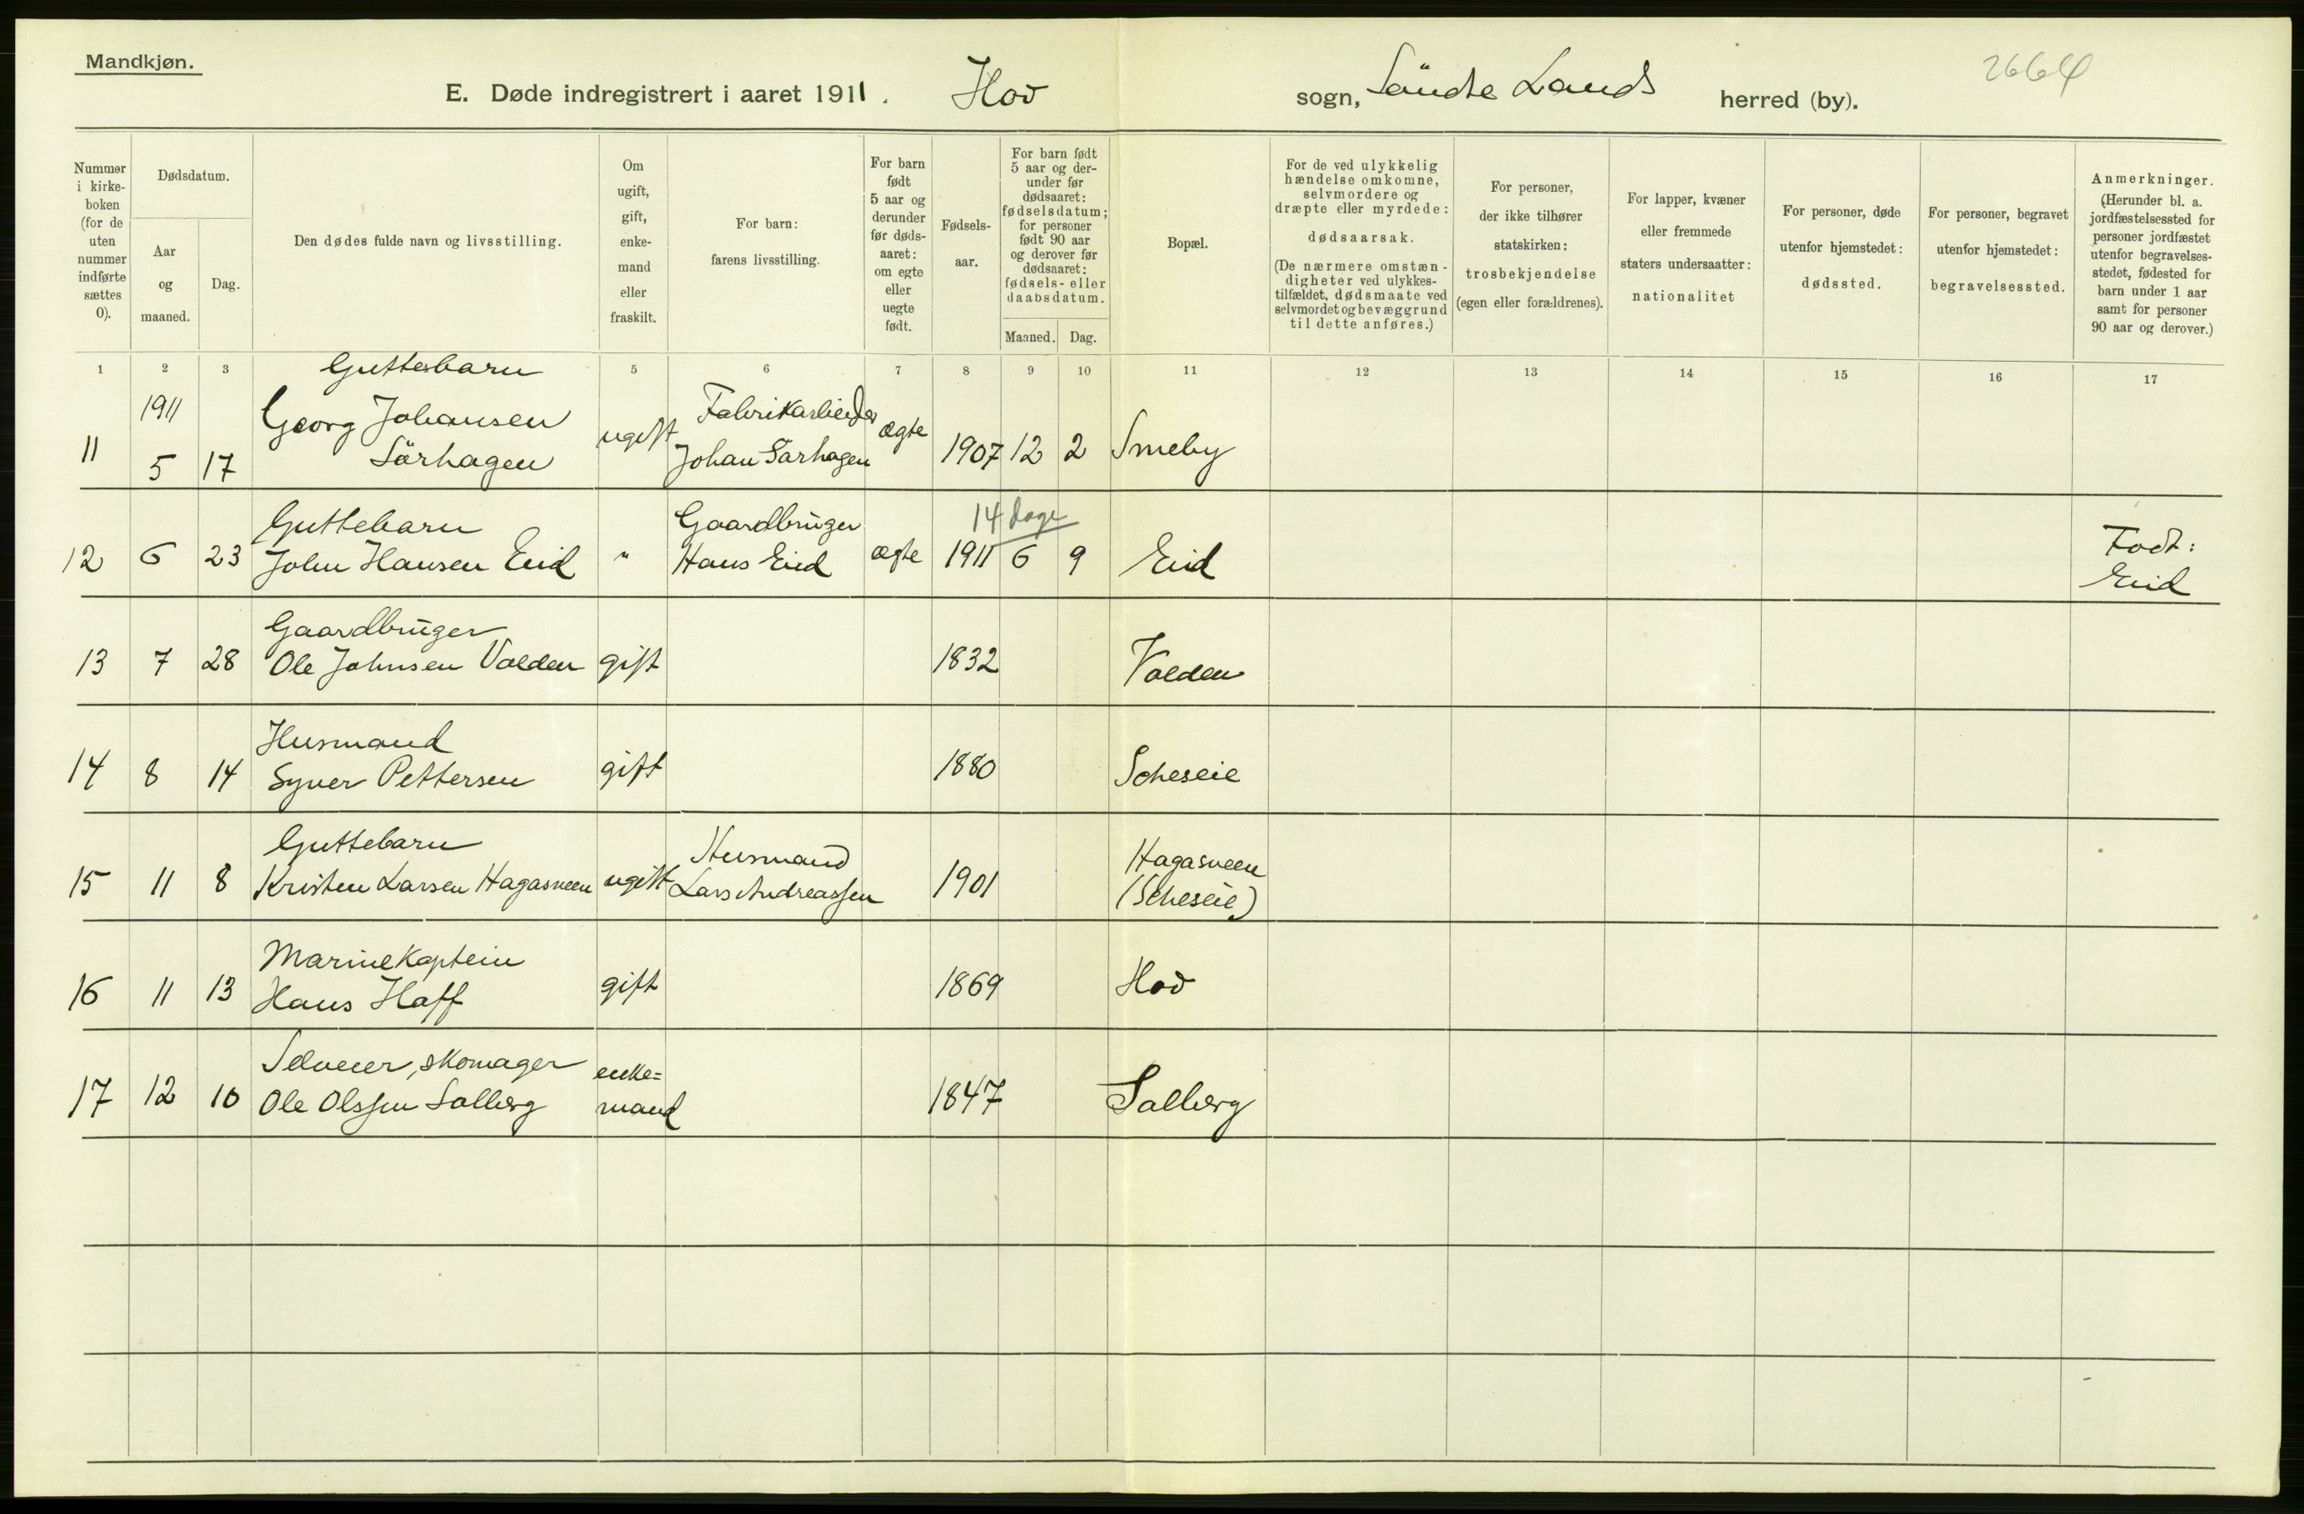 Mandkjøn.
E. Døde indregistrert i aaret 1911. Hov sogn, Söndre Lands herred (by).
2664
Nummer i kirke-boken (for de uten nummer indførte sættes 0).
Dødsdatum.
Aar og maaned.
Dag.
Den dødes fulde navn og livsstilling.
Om ugift, gift, enke-mand eller fraskilt.
For barn: farens livsstilling.
For barn født 5 aar og derunder før døds-aaret: om egte eller uegte født.
Fødsels-aar.
For barn født 5 aar og der-under før dødsaaret: fødselsdatum; for personer født 90 aar og derover før dødsaaret: fødsels- eller daabsdatum.
Maaned.
Dag.
Bopæl.
For de ved ulykkelig hændelse omkomne, selvmordere og dræpte eller myrdede: dødsaarsak. (De nærmere omstæn-digheter ved ulykkes-tilfældet, dødsmaate ved selvmordet og bevæggrund til dette anføres.)
For personer, der ikke tilhører statskirken: trosbekjendelse (egen eller forældrenes).
For lapper, kvæner eller fremmede staters undersaatter: nationalitet
For personer, døde utenfor hjemstedet: dødssted.
For personer, begravet utenfor hjemstedet: begravelsessted.
Anmerkninger. (Herunder bl. a. jordfæstelsessted for personer jordfæstet utenfor begravelses-stedet, fødested for barn under 1 aar samt for personer 90 aar og derover.)
1 2 3 5 6 7 8 9 10 11 12 13 14 15 16 17
Guttebarn
1911 Georg Johansen Fabrikarbeider
11 5 17 Sörhagen ugift Johan Sørhagen ægte 1907 12 2 Smeby
Guttebarn Gaardbruger 14 dage
12 6 23 John Hansen Eid " Hans Eid ægte 1911 6 9 Eid Født: Eid
Gaardbruger
13 7 28 Ole Johnsen Volden gift 1832 Volden
Husmand
14 8 14 Syver Pettersen gift 1880 Scheseie
Guttebarn Husmand Hagasveen
15 11 8 Kristen Larsen Hagasveen ugift Lars Andreassen 1901 (Scheseie)
Marinekaptein
16 11 13 Hans Haff gift 1869 Hov
Selveier, skomager enke=
17 12 10 Ole Olssen Solberg mand 1847 Solberg